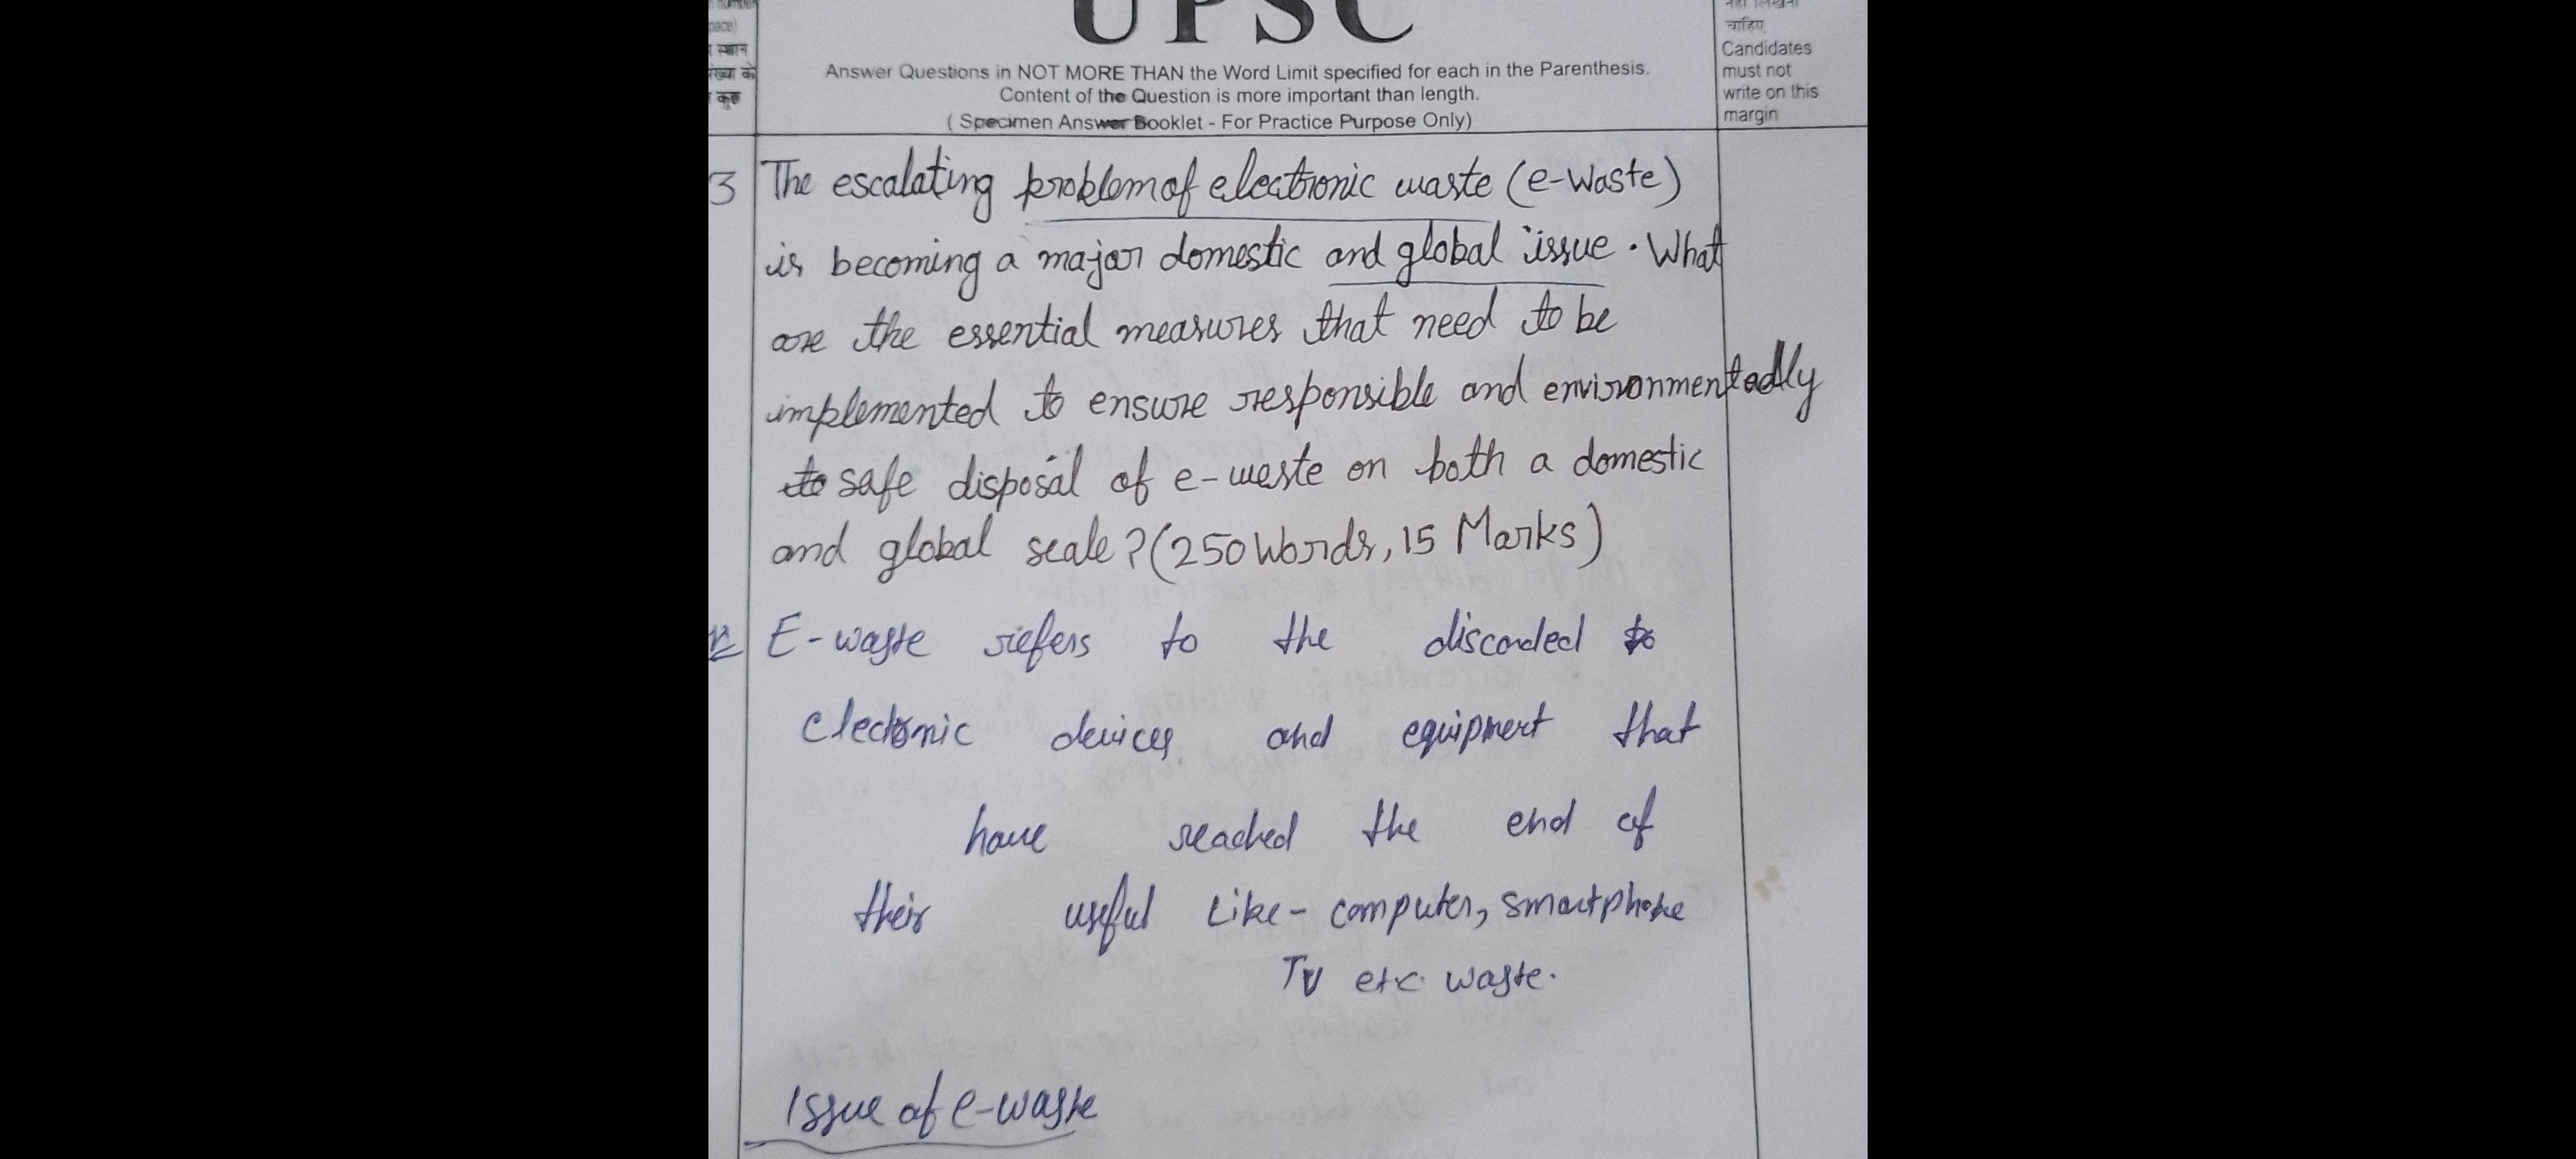 pace)
स्थान
संख्या के
कुछ
UPSC
Answer Questions in NOT MORE THAN the Word Limit specified for each in the Parenthesis.
Content of the Question is more important than length.
( Specimen Answer Booklet - For Practice Purpose Only)
चाहिए
Candidates
must not
write on this
margin
3 The escalating problem of electronic waste (e-waste)
is becoming a major domestic and global issue. What
are the essential measures that need to be
implemented to ensure responsible and environmentedly
to safe disposal of e-waste on both a domestic
and global scale? (250 Words, 15 Marks)
E-waste refers to the discarded to
electronic devices and equipment that
have reached the end of
their useful Like- computer, smartphone
TV etc. waste.
Issue of e-waste